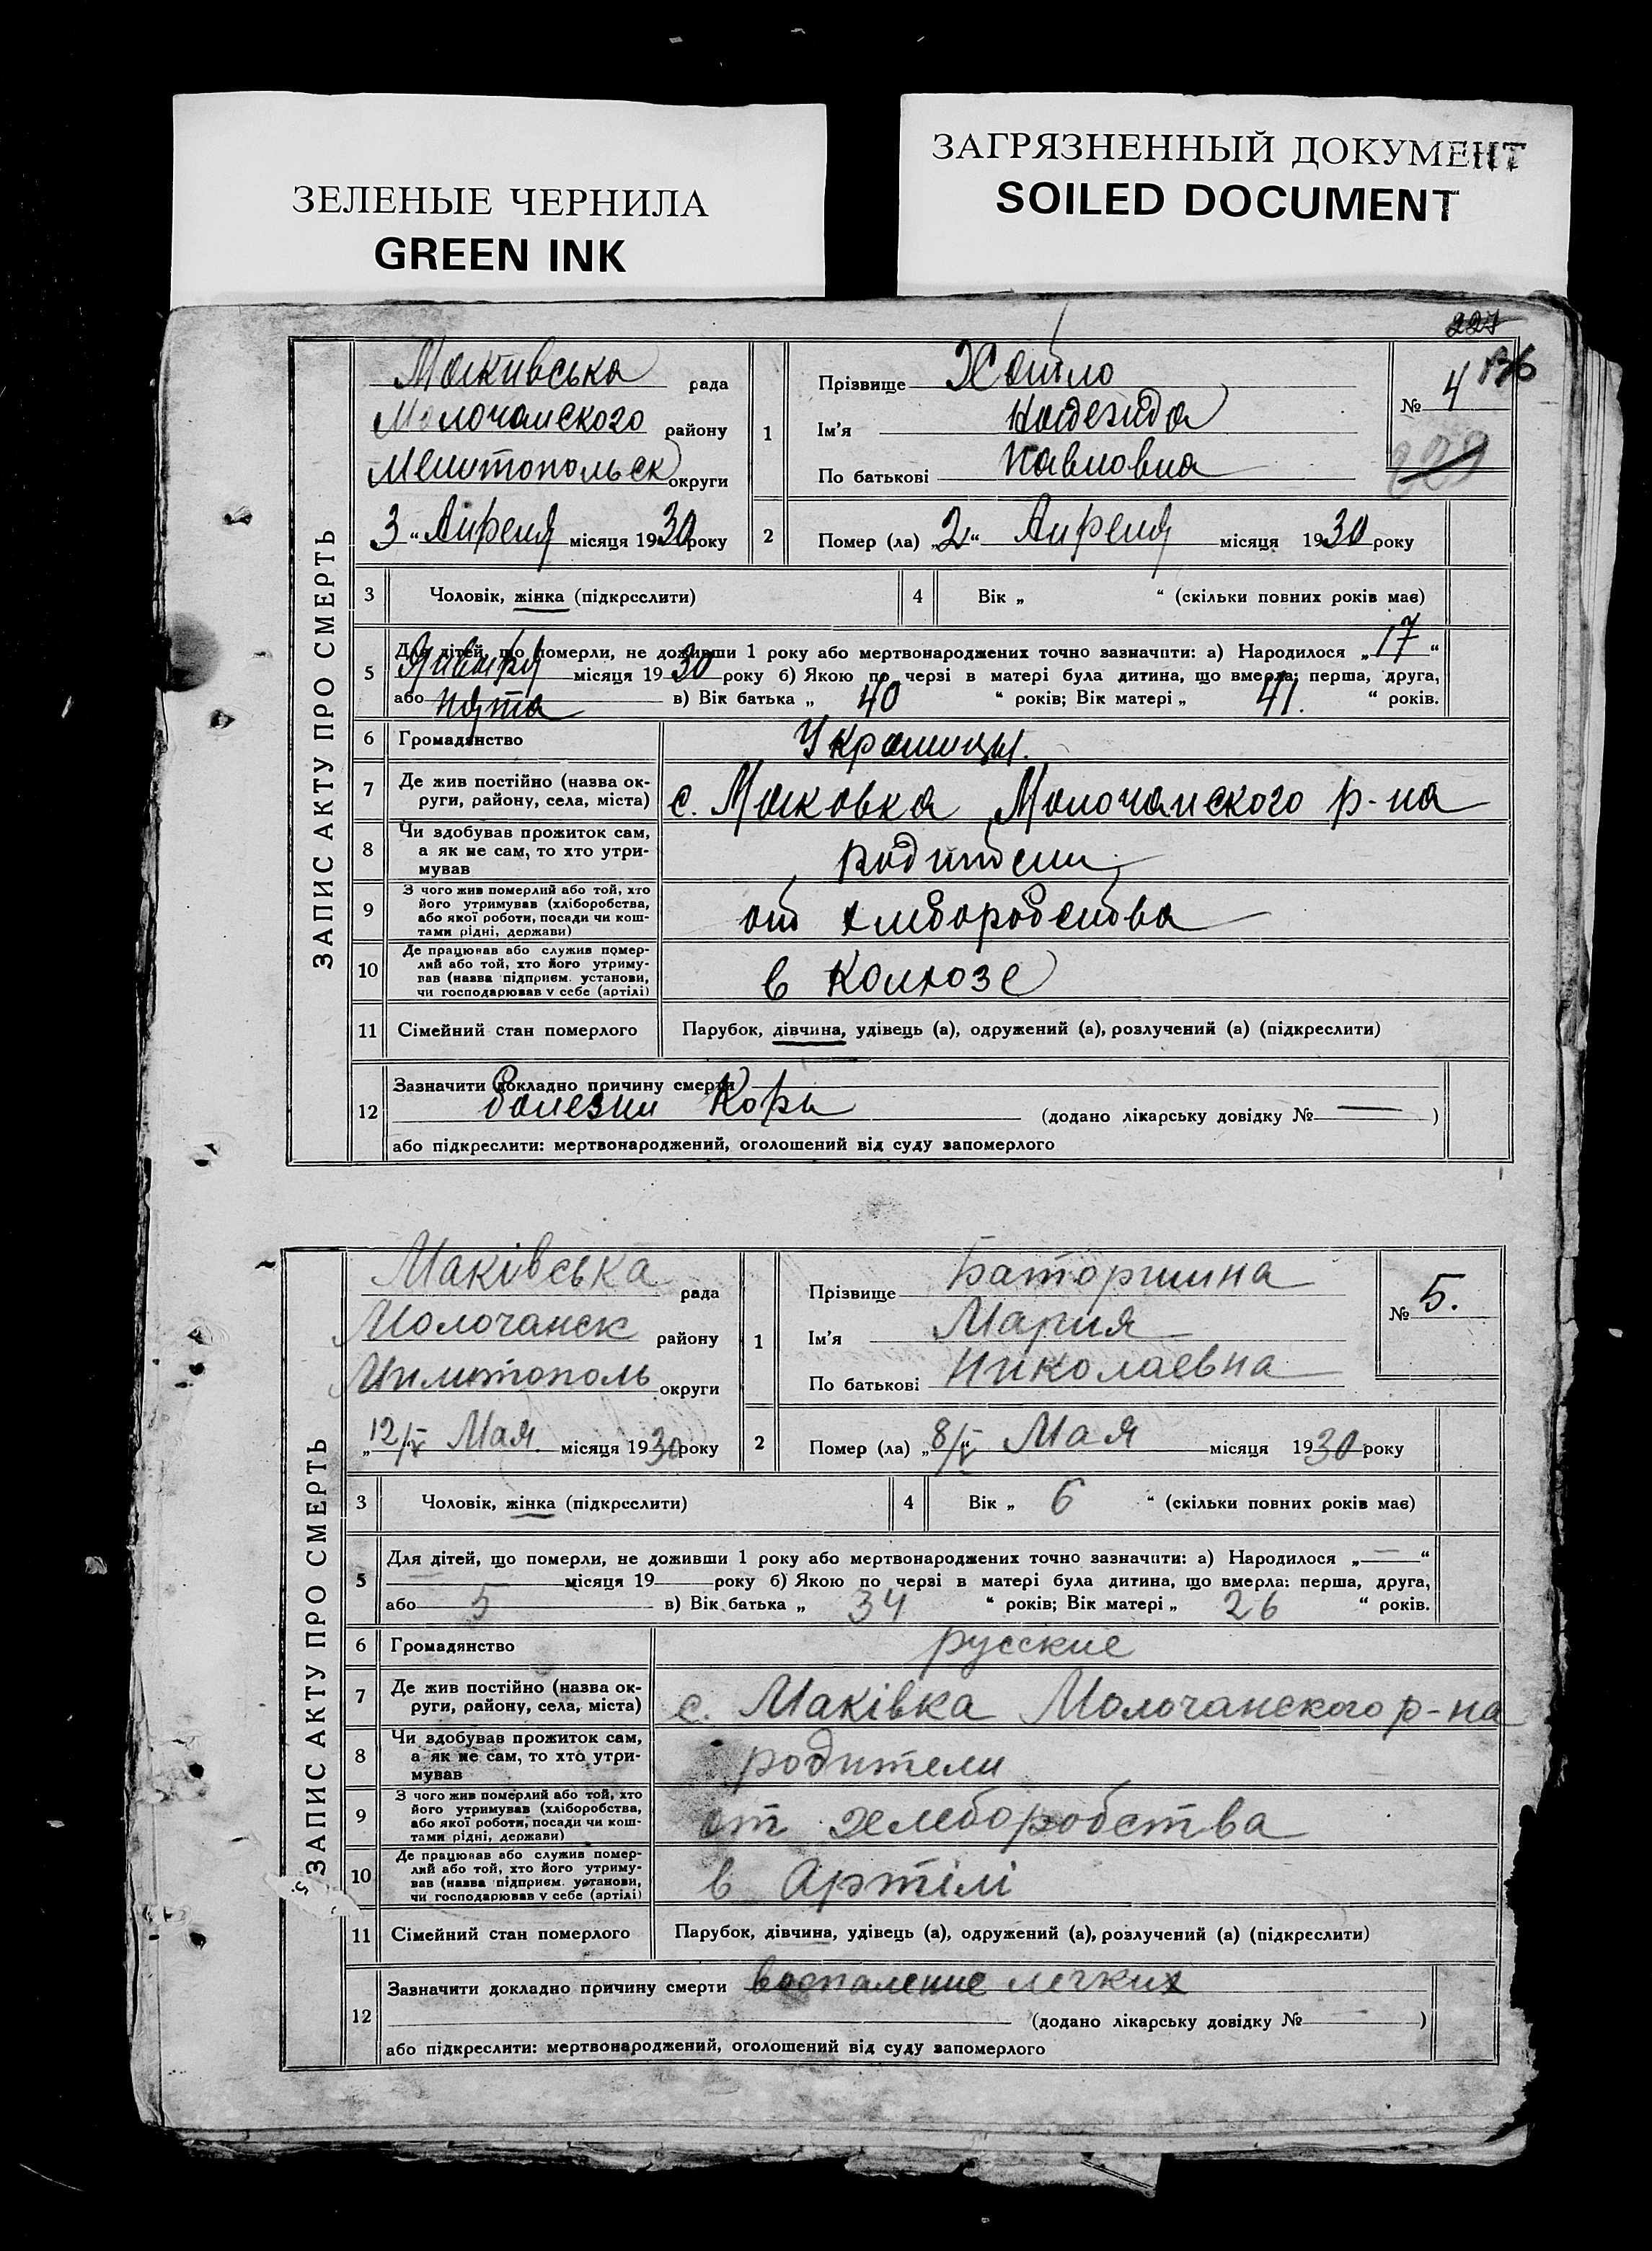 ЗЕЛЕНЫЕ ЧЕРНИЛА
GREEN INK
ЗАГРЯЗНЕННЫЙ ДОКУМЕНТ
SOILED DOCUMENT
227
ЗАПИС АКТУ ПРО СМЕРТЬ
Маківська рада
Молочанского району
Мелитопольск округи
3 " Апреля місяця 1930 року
1
Прізвище
Ім'я Надежда
По батькові Павловна
№ 4
136
2 Помер (ла) „2" Апреля місяця 1930 року
3 Чоловік, жінка (підкреслити)
4 Вік „ " (скільки повних років має)
5 Для дітей, що померли, не доживши 1 року або мертвонароджених точно зазначити: а) Народилося „17"
Января місяця 1930 року б) Якою по черзі в матері була дитина, що вмерла: перша, друга,
або пята в) Вік батька „ 40 " років; Вік матері „ 41. " років.
6 Громадянство Украинцы.
7 Де жив постійно (назва ок-
руги, району, села, міста) с. Маковка Молочанского р-на
8 Чи здобував прожиток сам,
а як не сам, то хто утри-
мував родители
9 З чого жив померлий або той, хто
його утримував (хліборобства,
або якої роботи, посади чи кош-
тами рідні, держави) от хлеборобства
10 Де працював або служив помер-
лий або той, хто його утриму-
вав (назва підприєм. установи,
чи господарював у себе (артілі) в Колхозе
11 Сімейний стан померлого Парубок, дівчина, удівець (а), одружений (а), розлучений (а) (підкреслити)
12 Зазначити докладно причину смерти
болезни Корь (додано лікарську довідку № — )
або підкреслити: мертвонароджений, оголошений від суду запомерлого
ЗАПИС АКТУ ПРО СМЕРТЬ
Маківська рада
Молочанск району
Милитополь округи
„12/V Мая місяця 1930 року
1
Прізвище
Ім'я Мария
По батькові Николаевна
№ 5.
2 Помер (ла) „8/V" Мая місяця 1930 року
3 Чоловік, жінка (підкреслити)
4 Вік „ 6 " (скільки повних років має)
5 Для дітей, що померли, не доживши 1 року або мертвонароджених точно зазначити: а) Народилося „—"
— місяця 19 року б) Якою по черзі в матері була дитина, що вмерла: перша, друга,
або 5 в) Вік батька „ 34 " років; Вік матері „ 26 " років.
6 Громадянство русские
7 Де жив постійно (назва ок-
руги, району, села, міста) с. Маківка Молочанского р-на
8 Чи здобував прожиток сам,
а як не сам, то хто утри-
мував родители
9 З чого жив померлий або той, хто
його утримував (хліборобства,
або якої роботи, посади чи кош-
тами рідні, держави) от хлеборобства
10 Де працював або служив помер-
лий або той, хто його утриму-
вав (назва підприєм. установи,
чи господарював у себе (артілі) в Артілі
11 Сімейний стан померлого Парубок, дівчина, удівець (а), одружений (а), розлучений (а) (підкреслити)
12 Зазначити докладно причину смерти воспаление легких
(додано лікарську довідку № — )
або підкреслити: мертвонароджений, оголошений від суду запомерлого